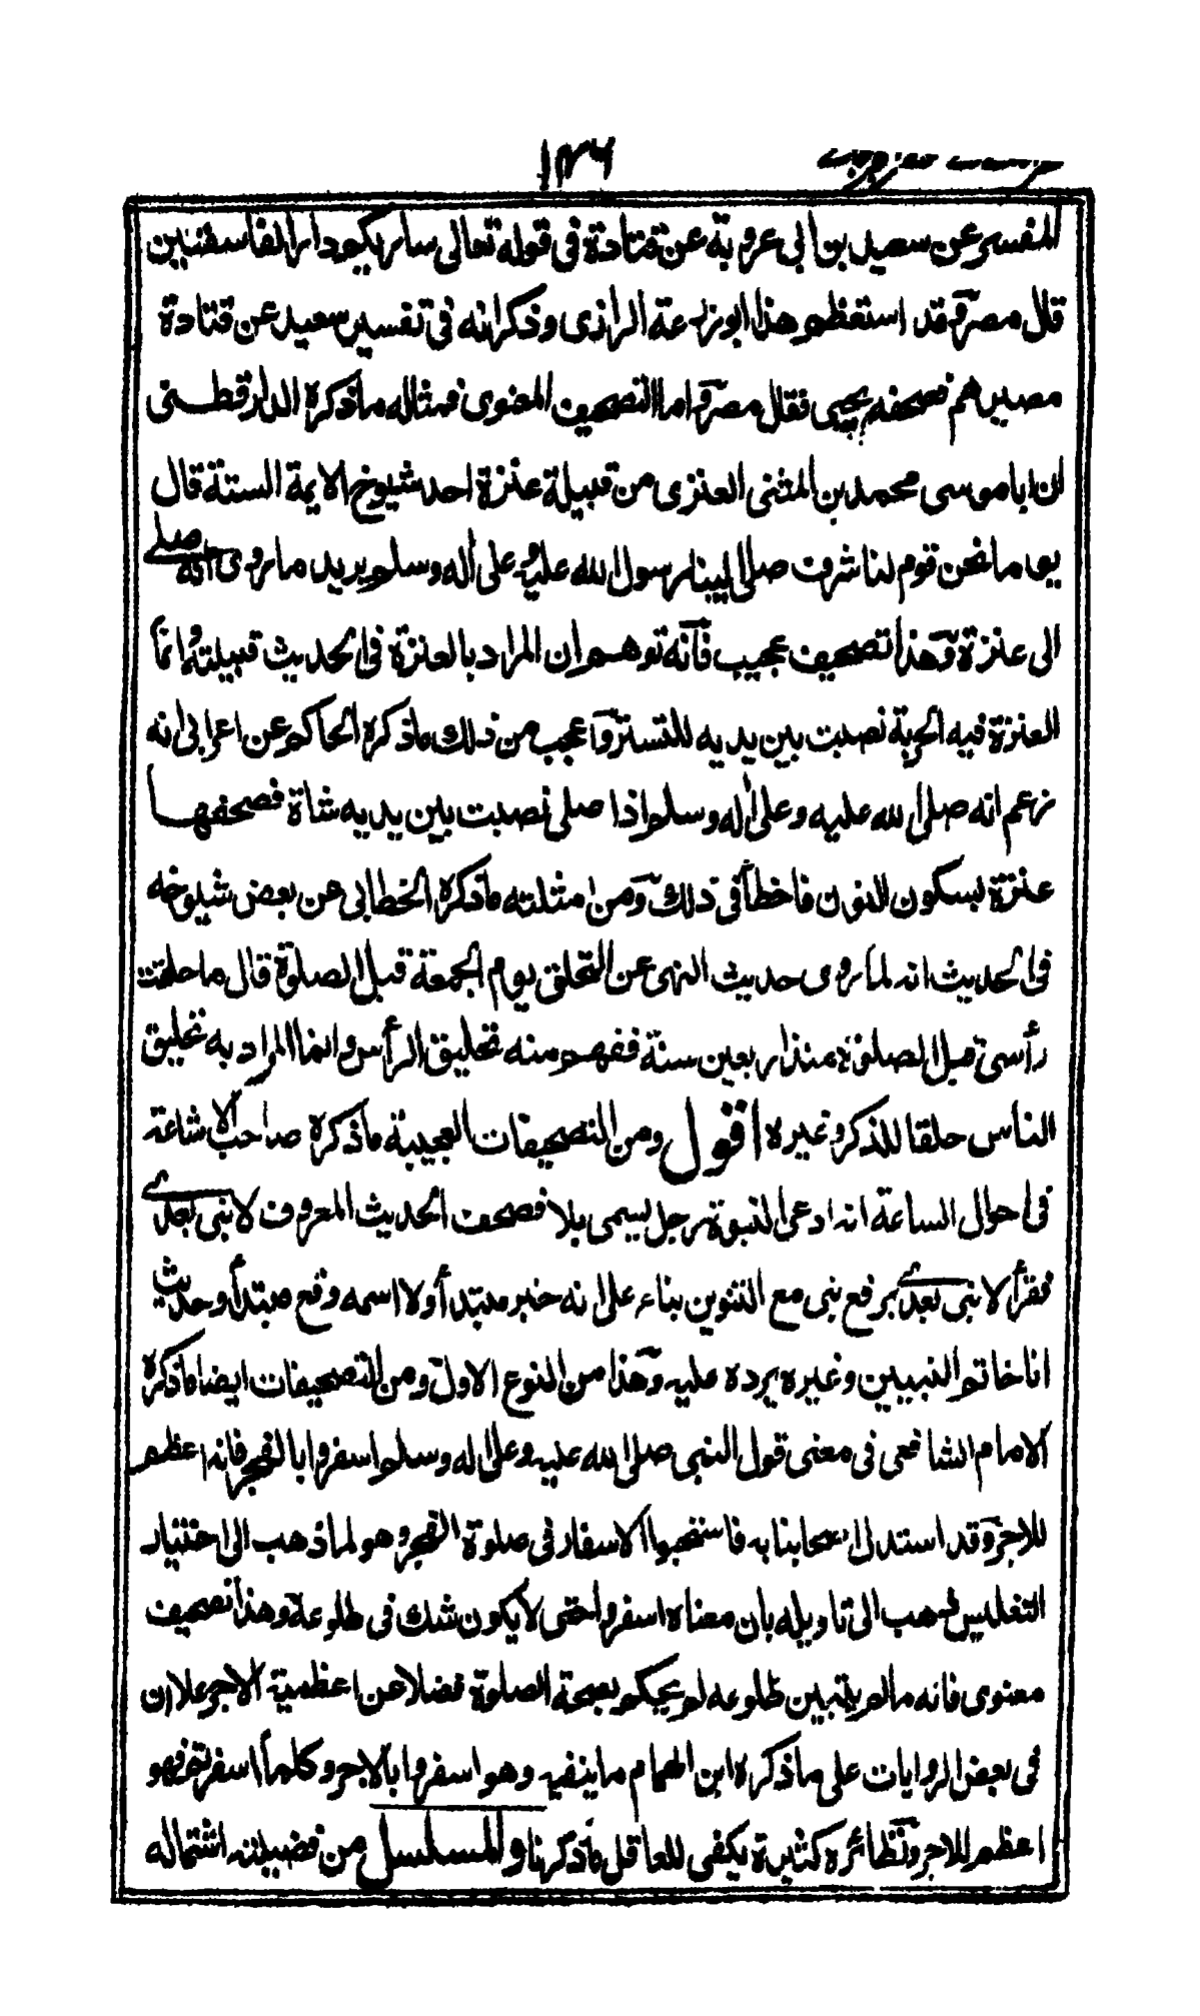 ۱۳۶
المفسر عن سعيد بن ابى عروبة عن قتادة فى قوله تعالى ساريكم دار الفاسقين
قال مصر وقد استعظم هذا ابو زرعة الرازى وذكر انه فى تفسير سعيد عن قتادة
مصيرهم فصحفه يحيى فقال مصر واما التصحيف المعنوى فمثاله ما ذكره الدارقطنى
ان ابا موسى محمد بن المثنى العنزى من قبيلة عنزة احد شيوخ الايمة الستة قال
يوما نحن قوم لنا شرف صلى الينا رسول الله عليه وعلى اله وسلم يريد ما روى انه صلى
الى عنزة وهذا تصحيف عجيب فانه توهم ان المراد بالعنزة فى الحديث قبيلته وانما
العنزة فيه الحربة نصبت بين يديه للتستر واعجب من ذلك ما ذكره الحاكم عن اعرابى انه
زعم انه صلى الله عليه وعلى اله وسلم اذا صلى نصبت بين يديه شاة فصحفها
عنزة بسكون النون فاخطأ فى ذلك ومن امثلته ما ذكره الخطابى عن بعض شيوخه
فى الحديث انه لما روى حديث النهى عن التحلق يوم الجمعة قبل الصلوة قال ما حلقت
رأسى قبل الصلوة منذ اربعين سنة ففهم منه تحليق الرأس وانما المراد به تحليق
الناس حلقا للذكر وغيره اقول ومن التصحيفات العجيبة ما ذكره صاحب الاشاعة
فى احوال الساعة انه ادعى النبوة رجل يسمى بلا فصحف الحديث المعروف لا نبى بعدى
فقرأ لا نبى بعدى برفع نبى مع التنوين بناء على انه خبر مبتدأ ولا اسمه وقع مبتدأ وحديث
انا خاتم النبيين وغيره يرده عليه وهذا من النوع الاول ومن التصحيفات ايضا ما ذكره
الامام الشافعى فى معنى قول النبى صلى الله عليه وعلى اله وسلم اسفروا بالفجر فانه اعظم
للاجر وقد استدل اصحابنا به فاستحبوا الاسفار فى صلوة الفجر وهو لما ذهب الى اختيار
التغليس ذهب الى تاويله بان معناه اسفروا حتى لا يكون شك فى طلوعه وهذا تصحيف
معنوى فانه ما لم يتبين طلوعه لم يحكم بصحة الصلوة فضلا عن اعظمية الاجر علا ان
فى بعض الروايات على ما ذكره ابن الهمام ما ينفيه وهو اسفروا بالاجر وكلما اسفرتم فهو
اعظم للاجر ونظائره كثيرة يكفى للعاقل ما ذكرنا والمسلسل من فضيلته اشتماله